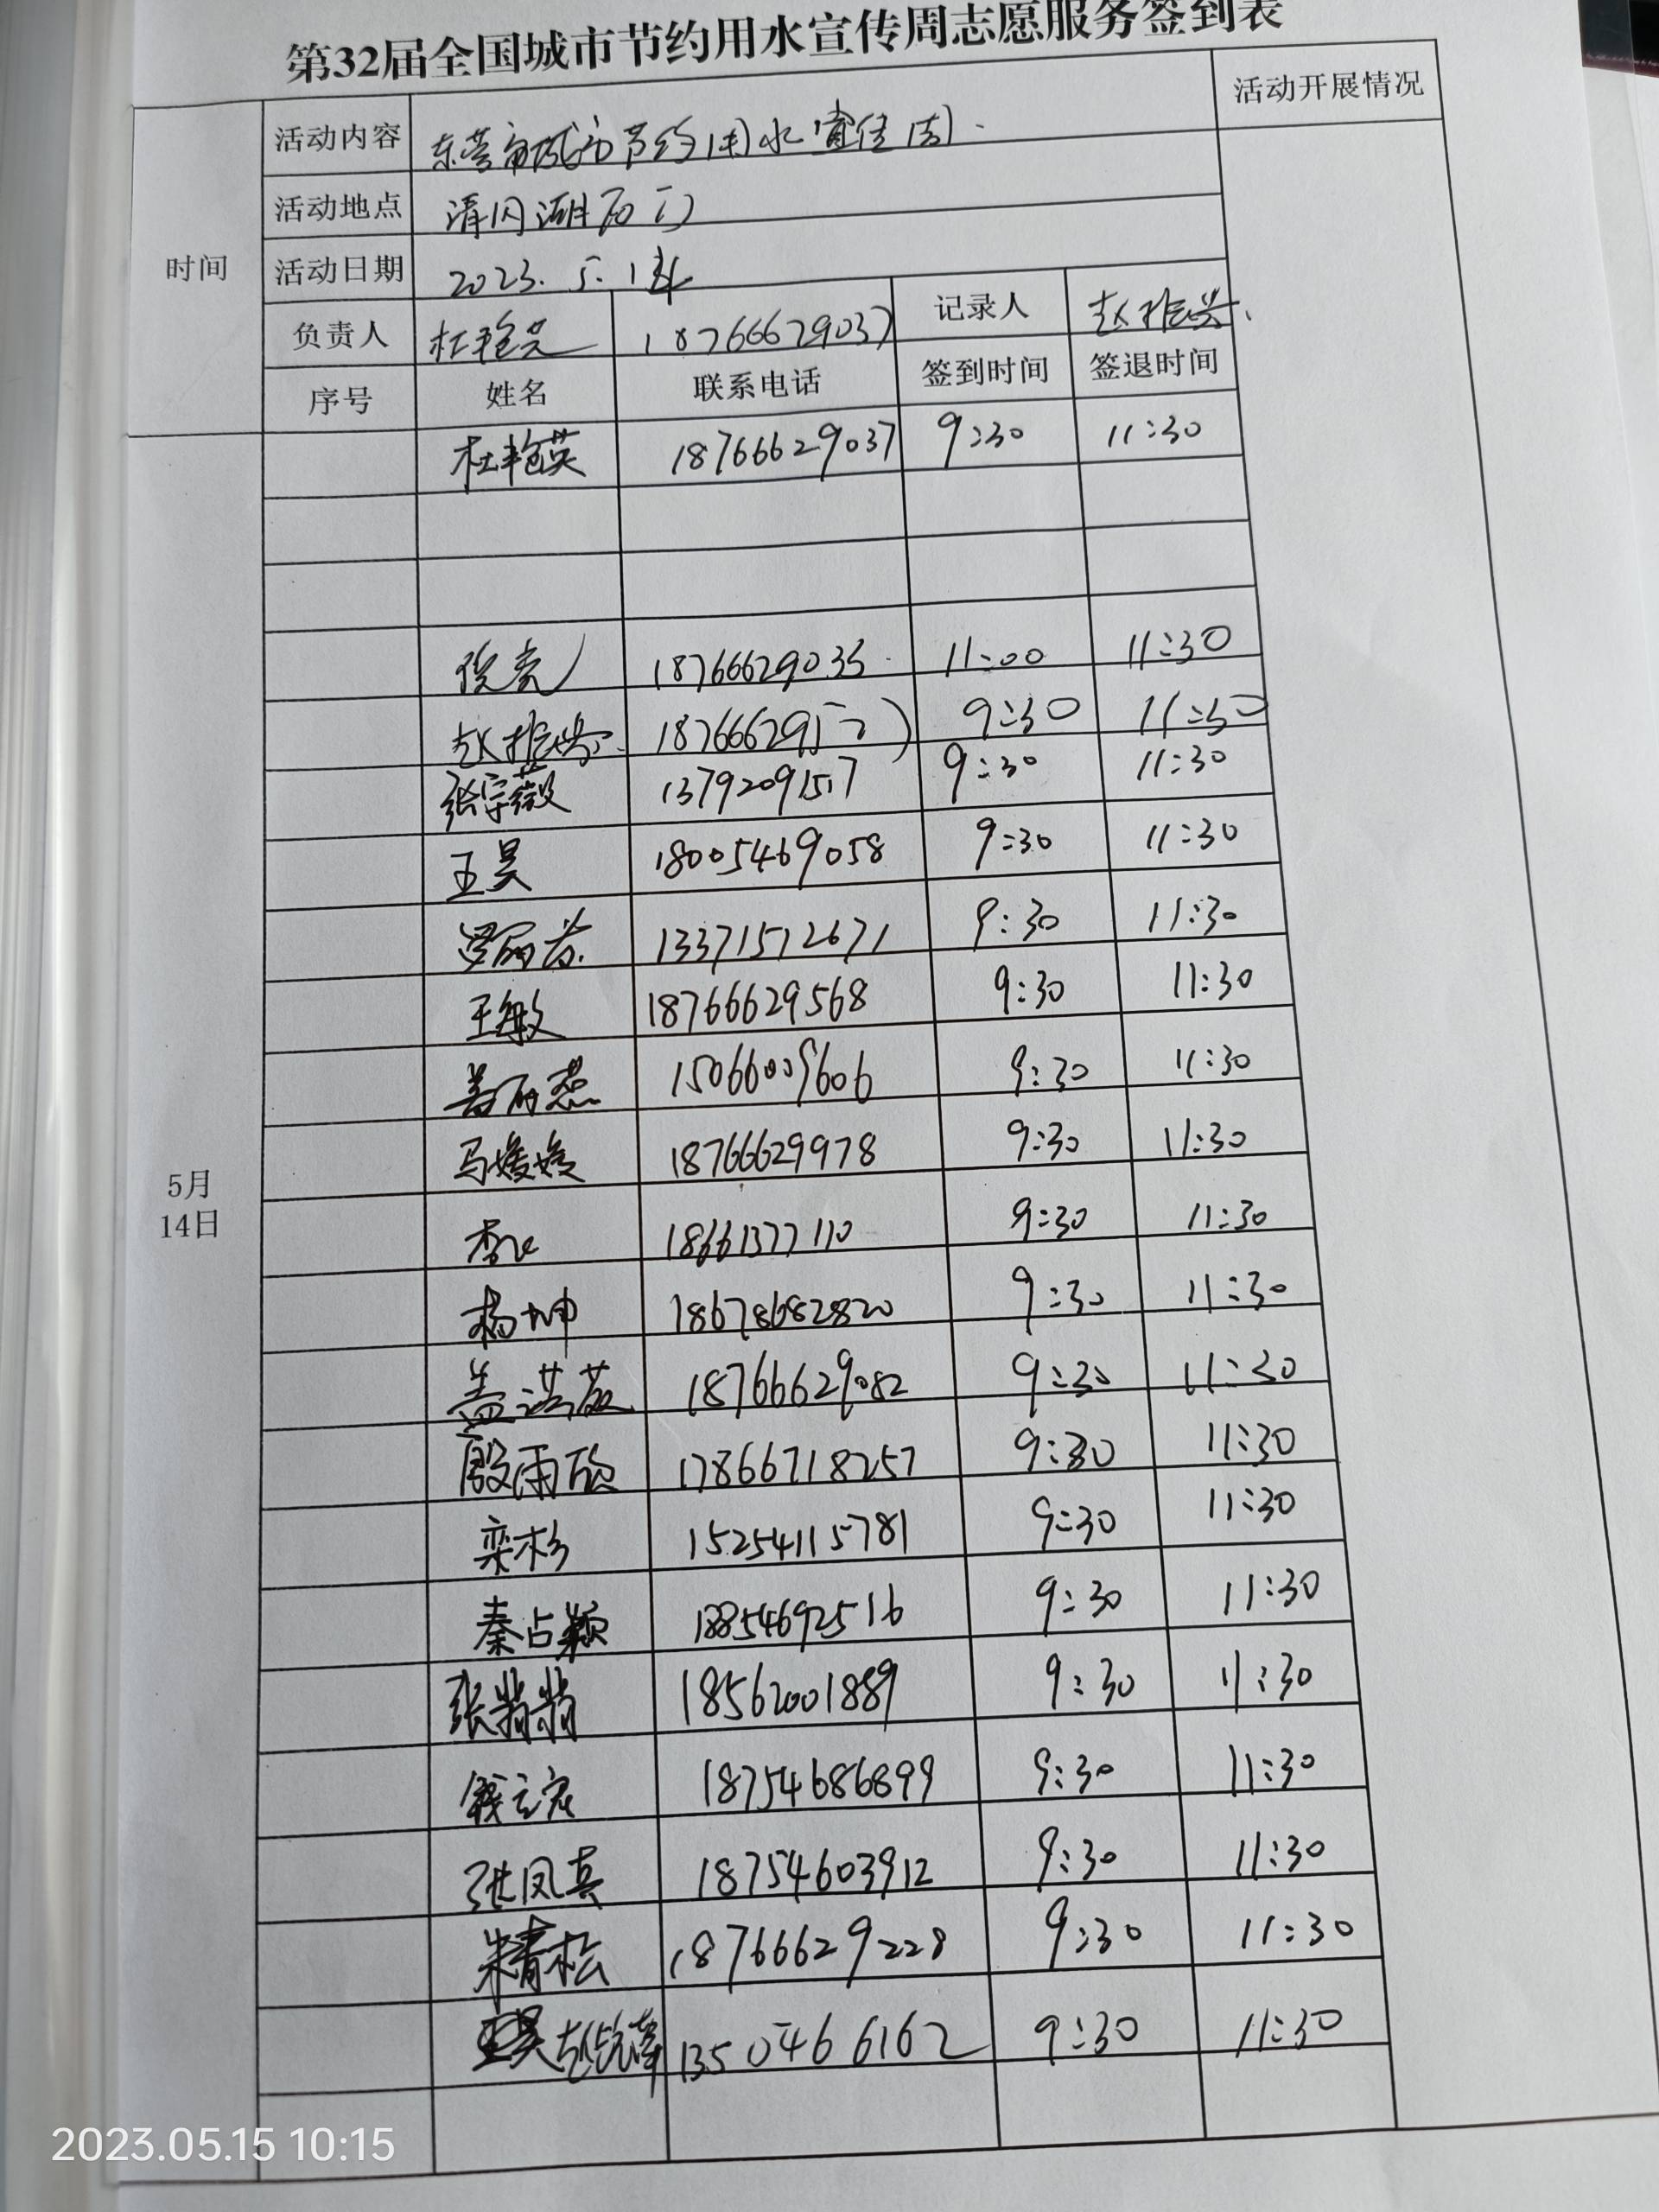 第32届全国城市节约用水宣传周志愿服务签到表
时间 活动内容 东营市城市节约用水宣传周 活动开展情况
活动地点 清风湖西门
活动日期 2023.5.14
负责人 杜艳英 18766629037 记录人 赵振兴
序号 姓名 联系电话 签到时间 签退时间
杜艳英 18766629037 9:30 11:30
18766629035 11:00 11:30
赵振兴 9:30 11:30
张宗薇 13792091517 9:30 11:30
王昊 18005469058 9:30 11:30
13371572671 9:30 11:30
王敏 18766629568 9:30 11:30
9:30 11:30
马媛媛 18766629978 9:30 11:30
18661377110 9:30 11:30
杨坤 18678682820 9:30 11:30
盖洪 18766629082 9:30 11:30
殷雨欣 17866718257 9:30 11:30
栾杉 15254115781 9:30 11:30
秦占颖 18854692516 9:30 11:30
张翡翡 18562001889 9:30 11:30
18754686899 9:30 11:30
张凤英 18754603912 9:30 11:30
朱青松 18766629228 9:30 11:30
13505466162 9:30 11:30
5月
14日
2023.05.15 10:15